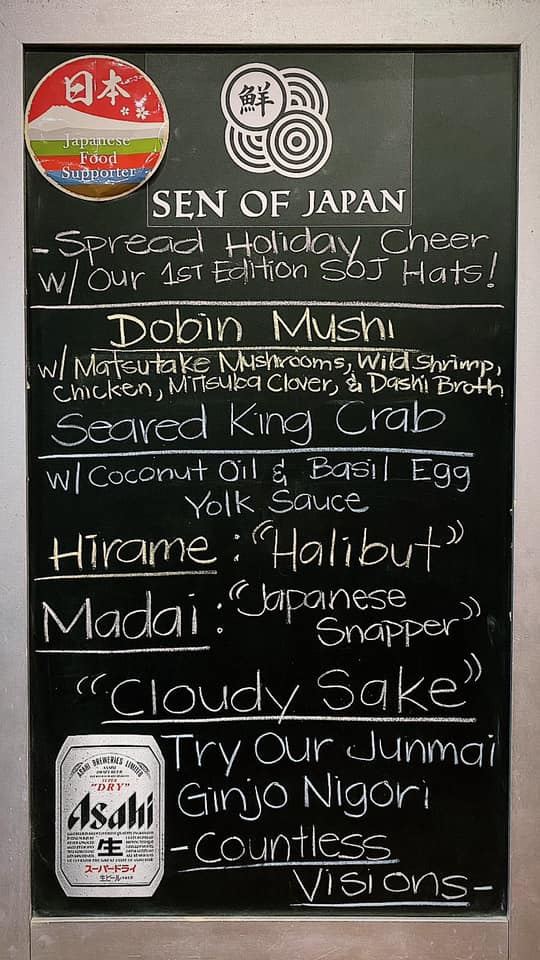 日本
Japanese
Food
Supporter
鮮
SEN OF JAPAN
- Spread Holiday Cheer
w/ Our 1st Edition SOJ Hats!
Dobin Mushi
w/ Matsutake Mushrooms, Wild Shrimp,
Chicken, Mitsuba Clover, & Dashi Broth
Seared King Crab
w/ Coconut Oil & Basil Egg
Yolk Sauce
Hirame : "Halibut"
Madai : "Japanese
Snapper"
"Cloudy Sake"
Try Our Junmai
Ginjo Nigori
- Countless
Visions -
ASAHI BREWERIES LIMITED
SUPER
"DRY"
Asahi
生
スーパードライ
生ビール